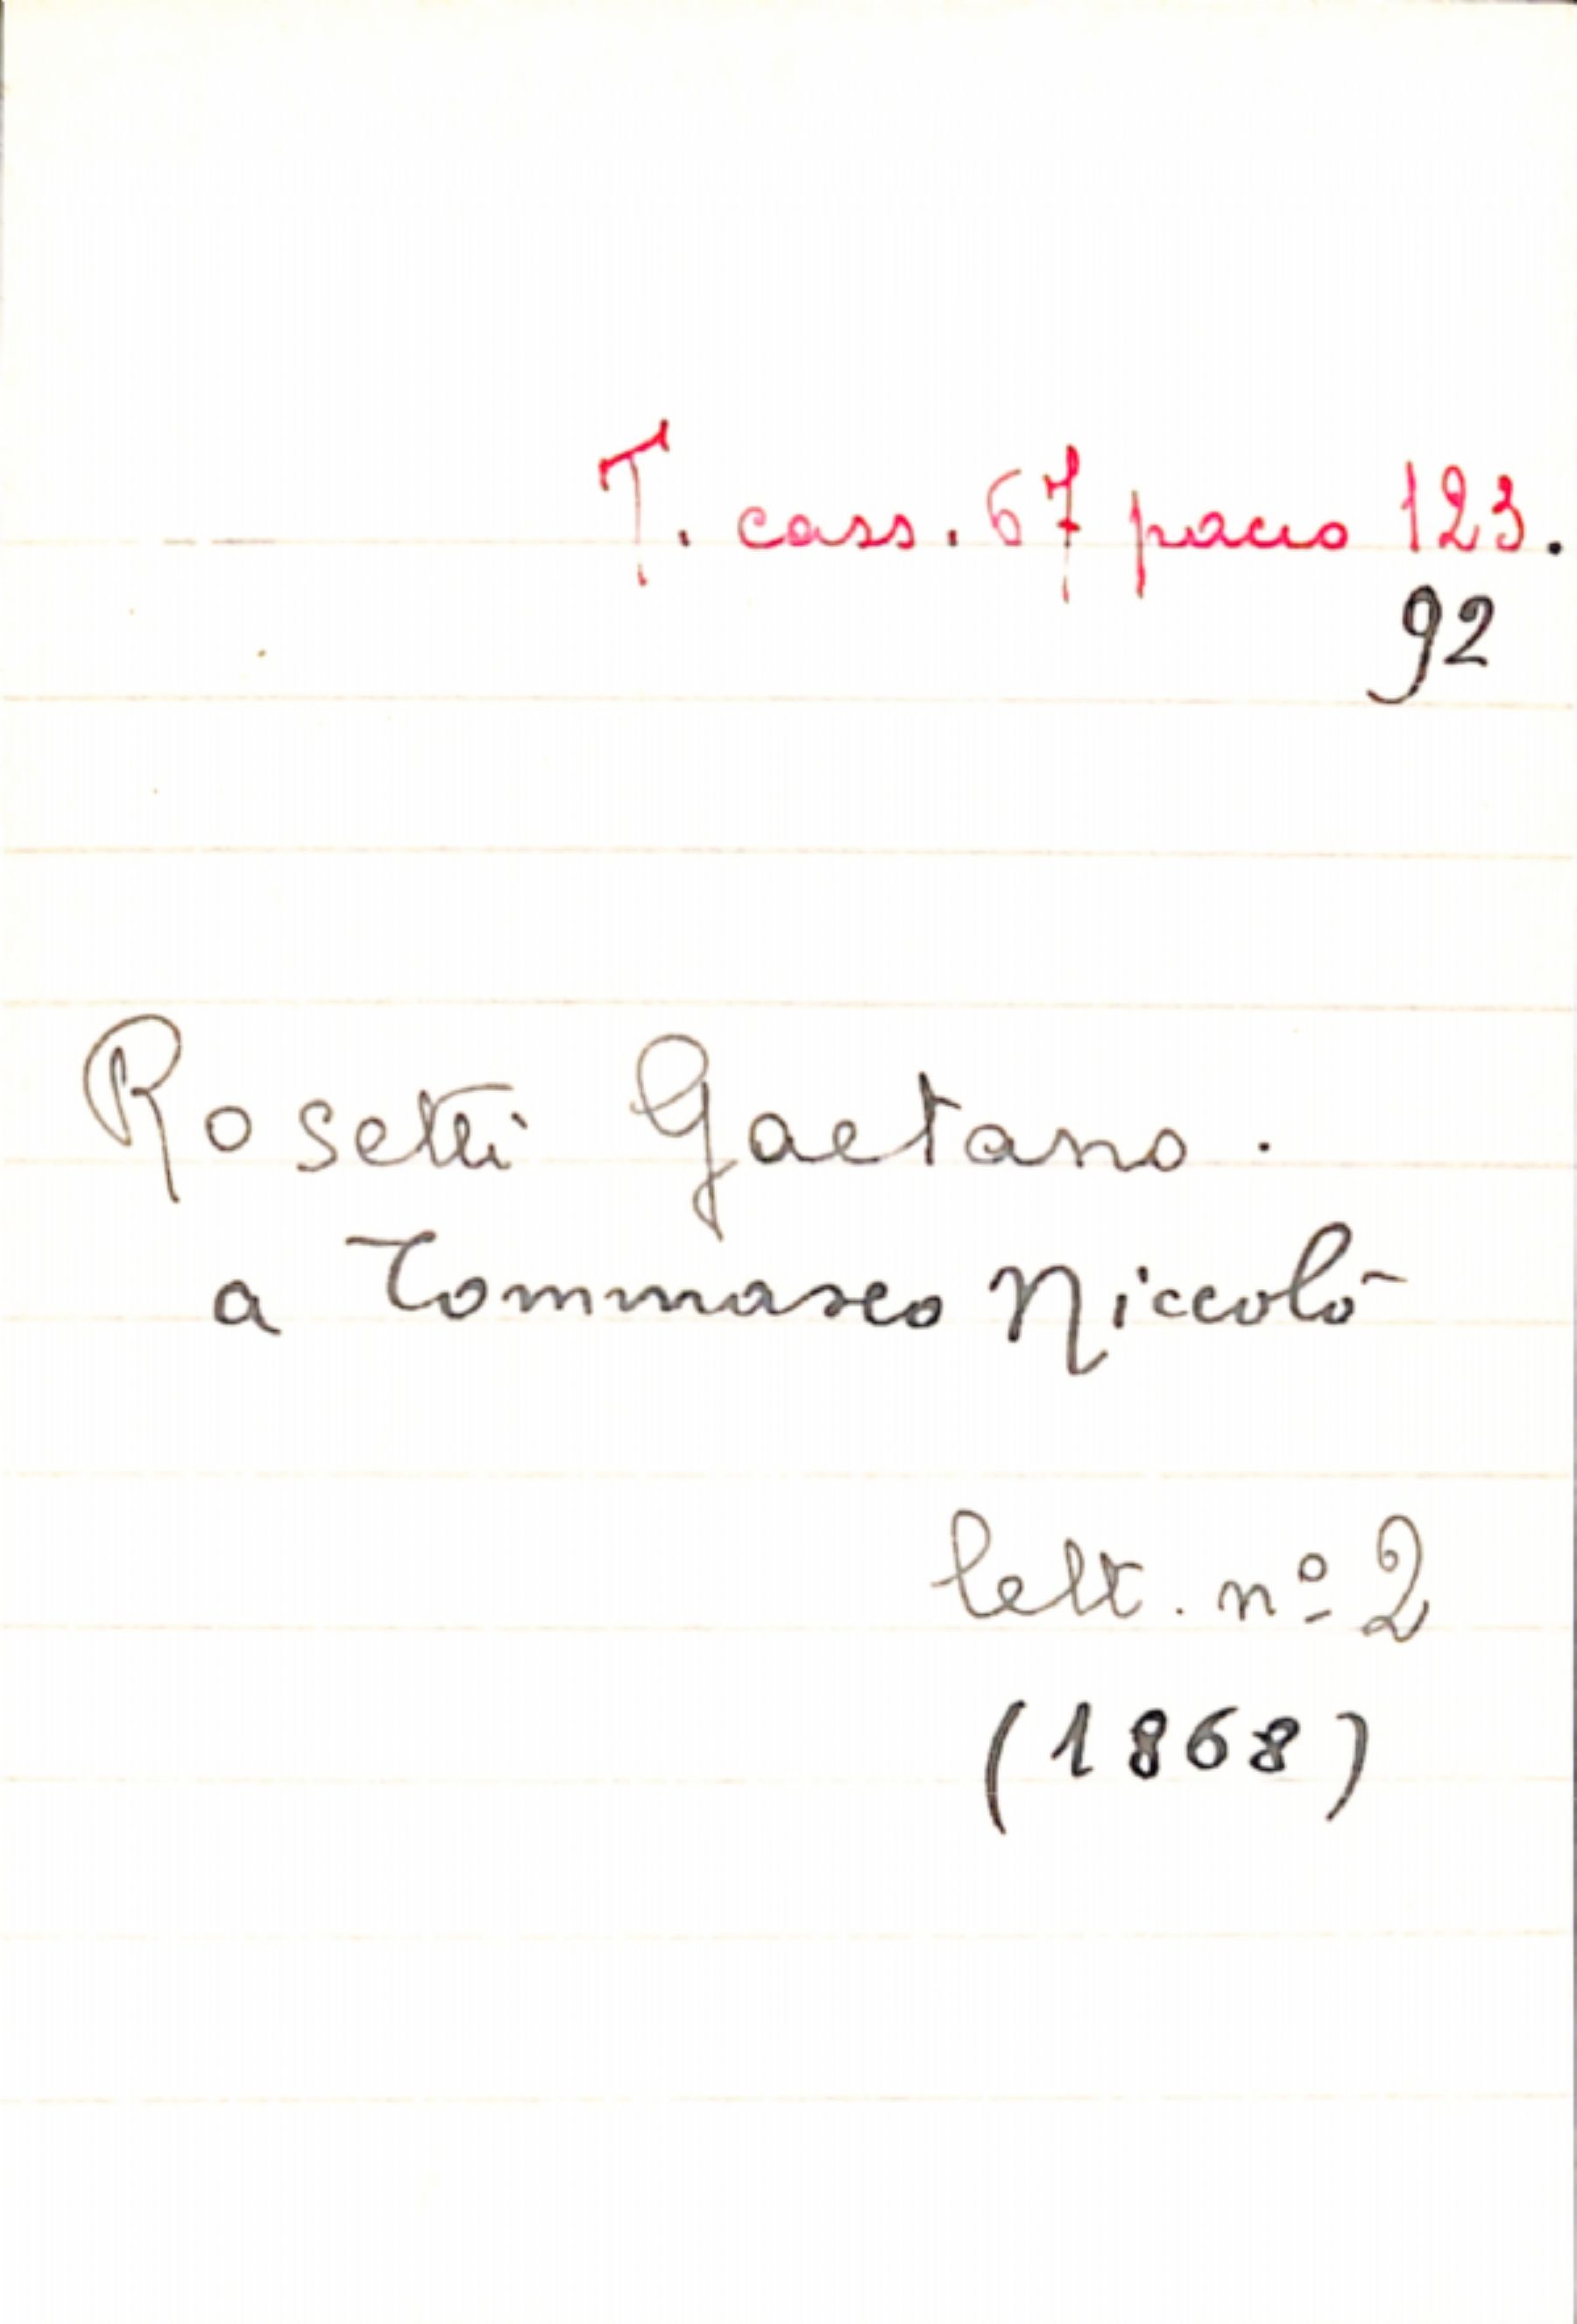 T. cass. 67 pacco 123.
92
Rosetti Gaetano.
a Tommaseo Niccolò
lett. nº 2
(1868)